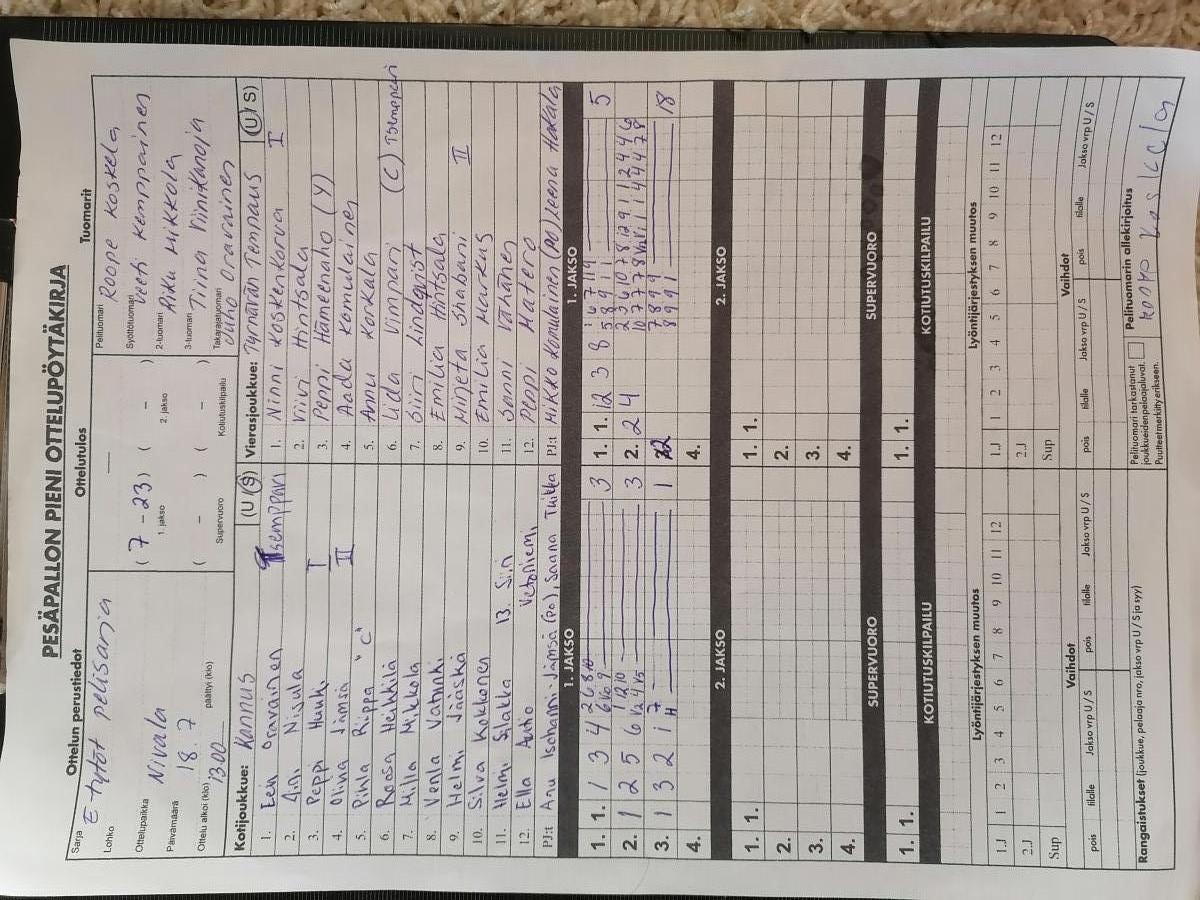 PESÄPALLON PIENI OTTELUPÖYTÄKIRJA
Ottelun perustiedot
Sarja
E tytöt pelisarja
Lohko
Ottelupaikka Nivala
Päivämäärä 18.7
Ottelu alkoi (klo) 1300 päättyi (klo)
Ottelutulos
( 7 - 23 ) ( - )
1. jakso 2. jakso
( - ) ( - )
Supervuoro Kotiutuskilpailu
Tuomarit
Pelituomari Roope Koskela
Syöttötuomari Veeti Kemppainen
2-tuomari Aku Mikkola
3-tuomari Tiina Viinikanoja
Takarajatuomari Juho Oravainen
Kotijoukkue: Kannus (U / S)
1. Eeri Oravainen Tsemppari
2. Aini Nisula
3. Peppi Huuki I
4. Olivia Jämsä II
5. Pihla Riippa "C"
6. Roosa Heikkilä
7. Milla Mikkola
8. Venla Vatunki
9. Helmi Jääskä
10. Silva Kokkonen
11. Helmi Slakka 13. Siiri
12. Ella Autio Vetoniemi
PJ:t Anu Isohanni-Jämsä (po), Saana Tuikka
Vierasjoukkue: Tyrnävän Tempaus (U / S)
1. Ninni Koskenkorva I
2. Viivi Hintsala
3. Peppi Hämeenaho (Y)
4. Aada Komulainen
5. Annu Korkala
6. Iida Vimpari (C) Tsemppari
7. Siiri Lindqvist
8. Emilia Hintsala
9. Minjeta Shabani II
10. Emilia Markus
11. Sonni Vähänen
12. Peppi Matero
PJ:t Mikko Komulainen (PO) Leena Hakala
1. JAKSO 1. JAKSO
1. 1. 1 3 4 3
2. 1 2 5 6 3
3. 1 3 2 1 1
4.
1. 1. 1 2 3 8 5
2. 2 4
3. 18
4.
2. JAKSO 2. JAKSO
1. 1. 1. 1.
2. 2.
3. 3.
4. 4.
SUPERVUORO SUPERVUORO
1. 1. 1. 1.
KOTIUTUSKILPAILU KOTIUTUSKILPAILU
Lyöntijärjestyksen muutos Lyöntijärjestyksen muutos
1.J 1 2 3 4 5 6 7 8 9 10 11 12 1.J 1 2 3 4 5 6 7 8 9 10 11 12
2.J 2.J
Sup Sup
Vaihdot Vaihdot
pois tilalle Jakso vrp U / S pois tilalle Jakso vrp U / S pois tilalle Jakso vrp U / S pois tilalle Jakso vrp U / S
Rangaistukset (joukkue, pelaaja nro, jakso vrp U / S ja syy)
Pelituomari tarkastanut
joukkueidenpelaajaluvat.
Puutteet merkitty erikseen.
Pelituomarin allekirjoitus